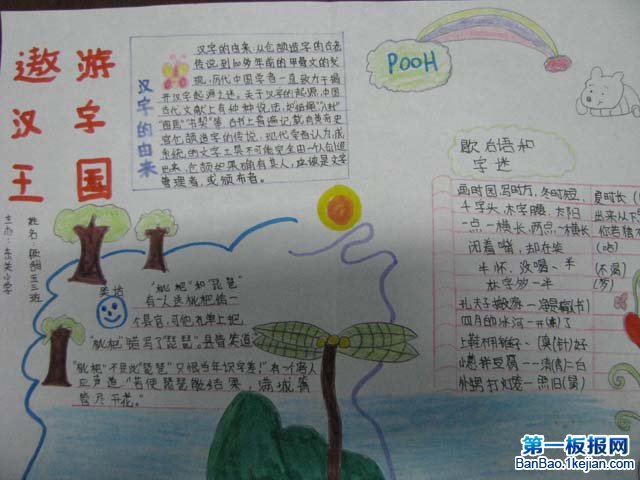 遨游
汉字
王国
主办:东关小学
姓名:
三班
汉字的由来
汉字的由来:从仓颉造字的古老
传说,到100多年前的甲骨文的发
现,历代中国学者一直致力于揭
开汉字起源之迷。关于汉字的起源,中国
古代文献上有种种说法,如"结绳""八卦"
"图画""书契"等,古书上普遍记载有黄帝史
官仓颉造字的传说。现代学者认为,成
系统的文字工具不可能完全由一个人创造
出来,仓颉如果确有其人,应该是文字
管理者,或颁布者。
POOH
歇后语和
字迷
画时圆,写时方,冬时短,夏时长(
千字头,木字腰,太阳出来从下
一点一横长,两点一横长
你若猜不
闭着嘴,却在
牛怀,没喝、半(不渴)
林字少一半
孔夫子搬家——净是输(书)
四月的冰河——开(凍)了
上鞋不用锥子——真(针)好
小葱拌豆腐——一清(青)二白
外甥打灯笼——照旧(舅)
笑话
"枇杷"和"琵琶"
有一人送枇杷给一
个县官,可他礼单上把
"枇杷"错写了"琵琶"。县官笑道
"枇杷"不是此"琵琶"只恨当年识字差!"有一个客人
应声道:"若使琵琶能结果,满城箫
管尽开花。"
第一板报网
BanBao.1kejian.com